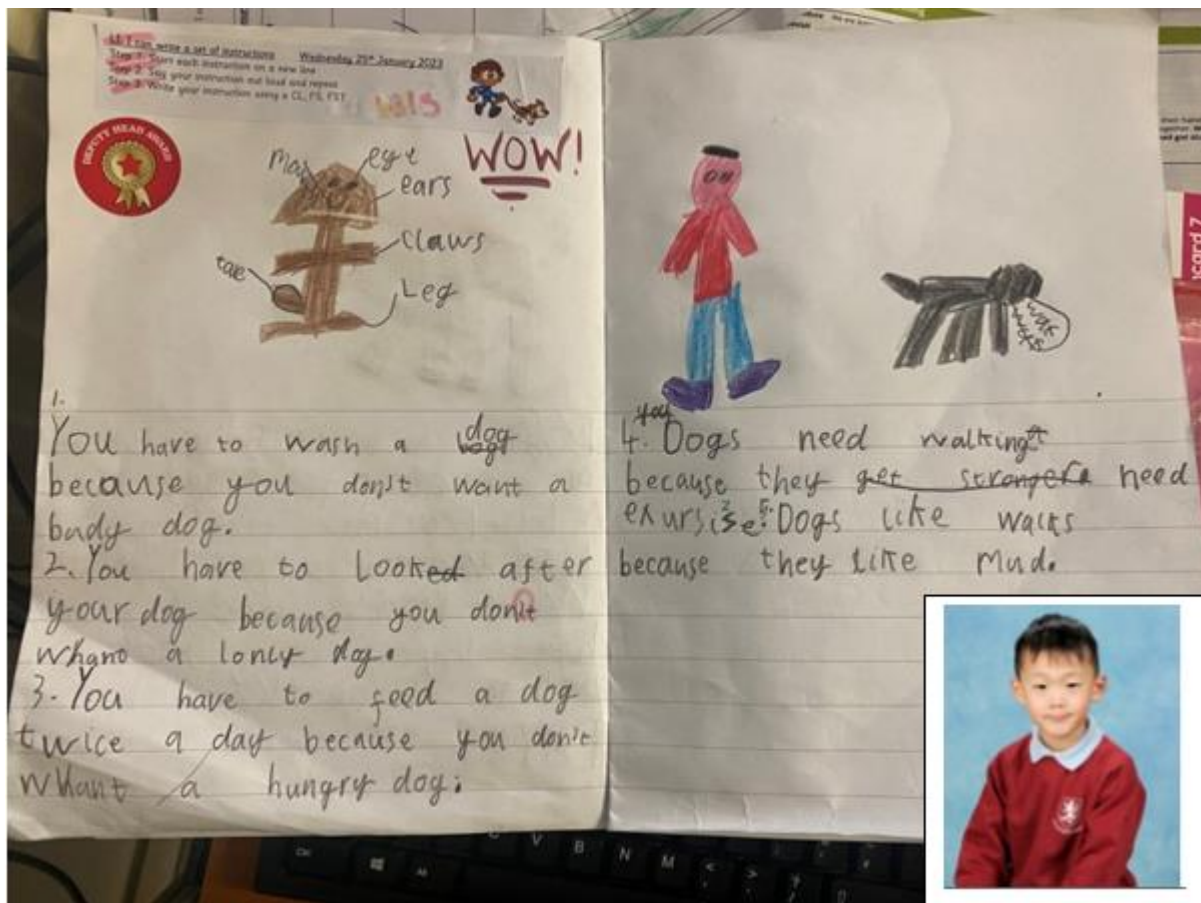 LI: I can write a set of instructions Wednesday 25th January 2023
Step 1: Start each instruction on a new line
Step 2: Say your instruction out loud and repeat
Step 3: Write your instruction using a CL, FS, FST
DEPUTY HEAD AWARD
WOW!
eye
ears
claws
Leg
tale
1.
You have to wash a dog
because you don't want a
bady dog.
2. You have to looked after
your dog because you don't
whant a lonly dog.
3. You have to feed a dog
twice a day because you don't
whant a hungry dog.
4. Dogs need walking
because they get stronger need
exursise. 5. Dogs like walks
because they like mud.
C V B N M